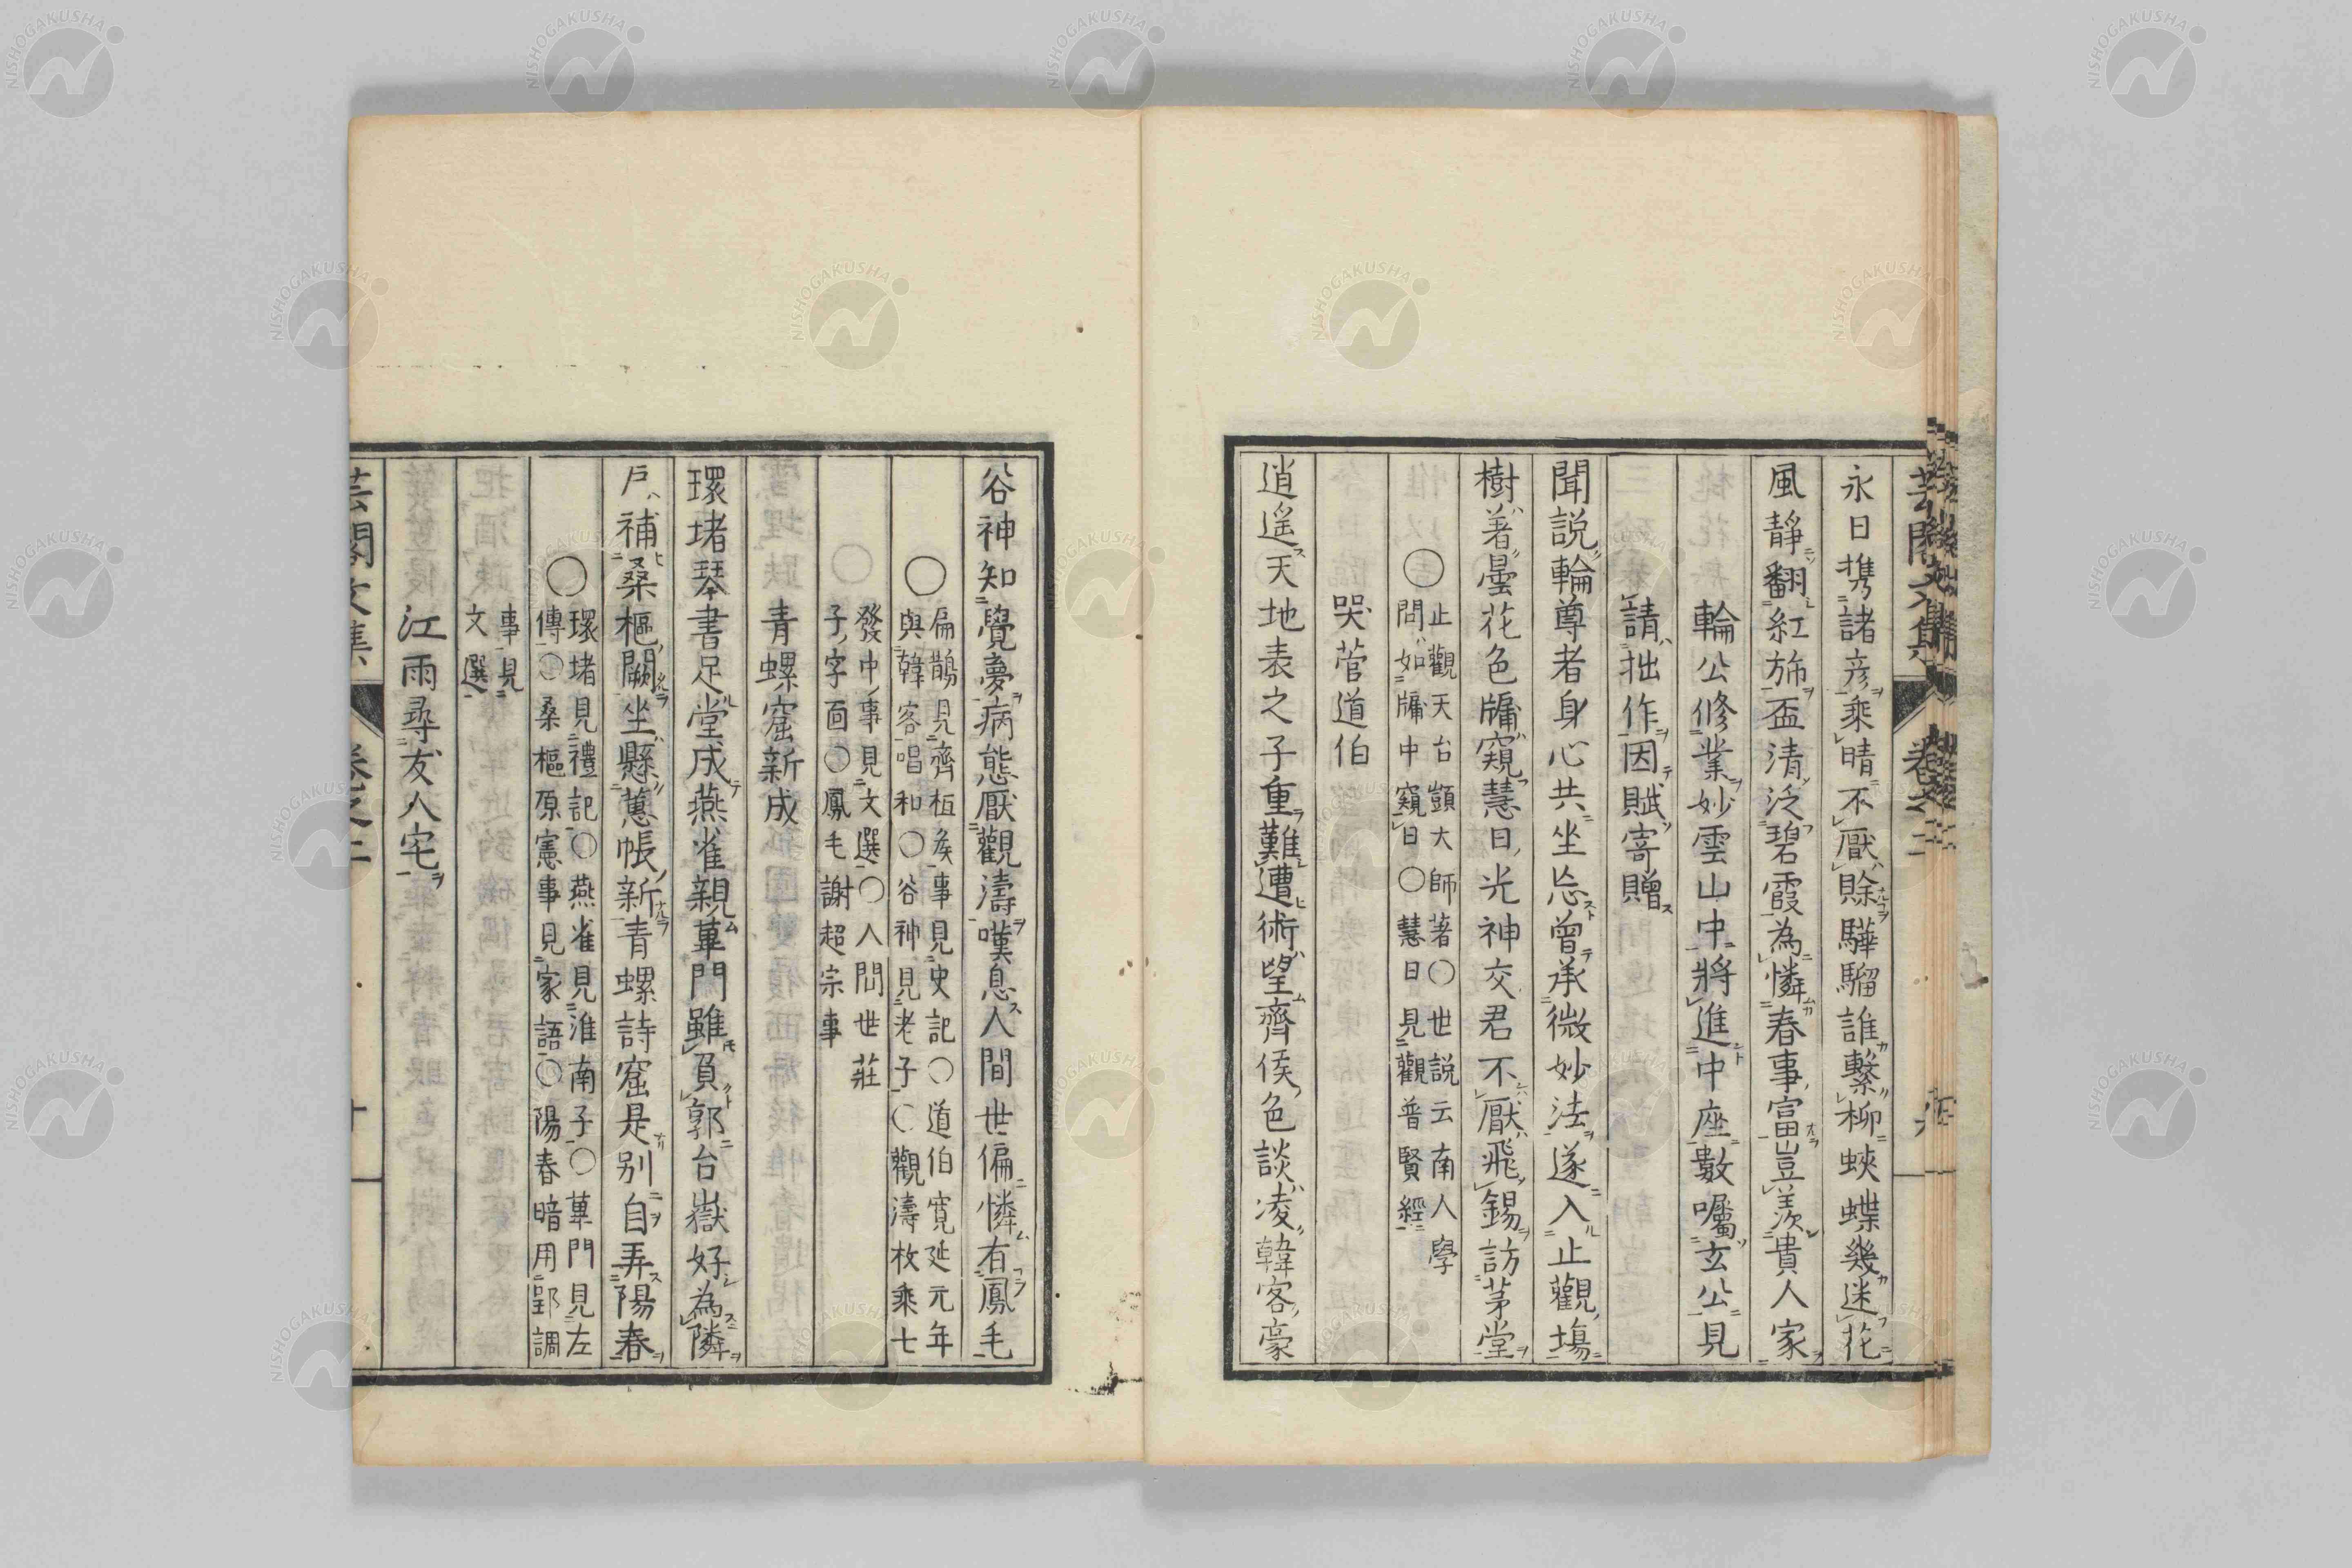 永日携諸彦乘晴不厭賖驊騮誰繫柳蛺蝶幾迷花
風静翻紅斾盃清泛碧霞為憐春事富豈羨貴人家
輪公修業妙雲山中將進中座數囑玄公見
請拙作因賦寄贈
聞説輪尊者身心共坐忘曾承微妙法遂入止觀塲
樹著曇花色牖窺慧日光神交君不厭飛錫訪茅堂
○止觀天台顗大師著○世説云南人學
問如牖中窺日○慧日見觀普賢經
哭菅道伯
逍遥天地表之子重難遭術望齊侯色談凌韓客豪
谷神知覺夢病態厭觀濤嘆息人間世偏憐有鳳毛
○扁鵲見齊桓矦事見史記○道伯寛延元年
與韓客唱和○谷神見老子○觀濤枚乘七
發中事見文選○人間世莊
子字面○鳳毛謝超宗事
青螺窟新成
環堵琴書足堂成燕雀親蓽門雖負郭台嶽好為隣
戸補桑樞闕坐懸蕙帳新青螺詩窟是别自弄陽春
○環堵見禮記○燕雀見淮南子○蓽門見左
傳○桑樞原憲事見家語○陽春暗用郢調
事見
文選
江雨尋友人宅
芸閣文集 卷之二 十